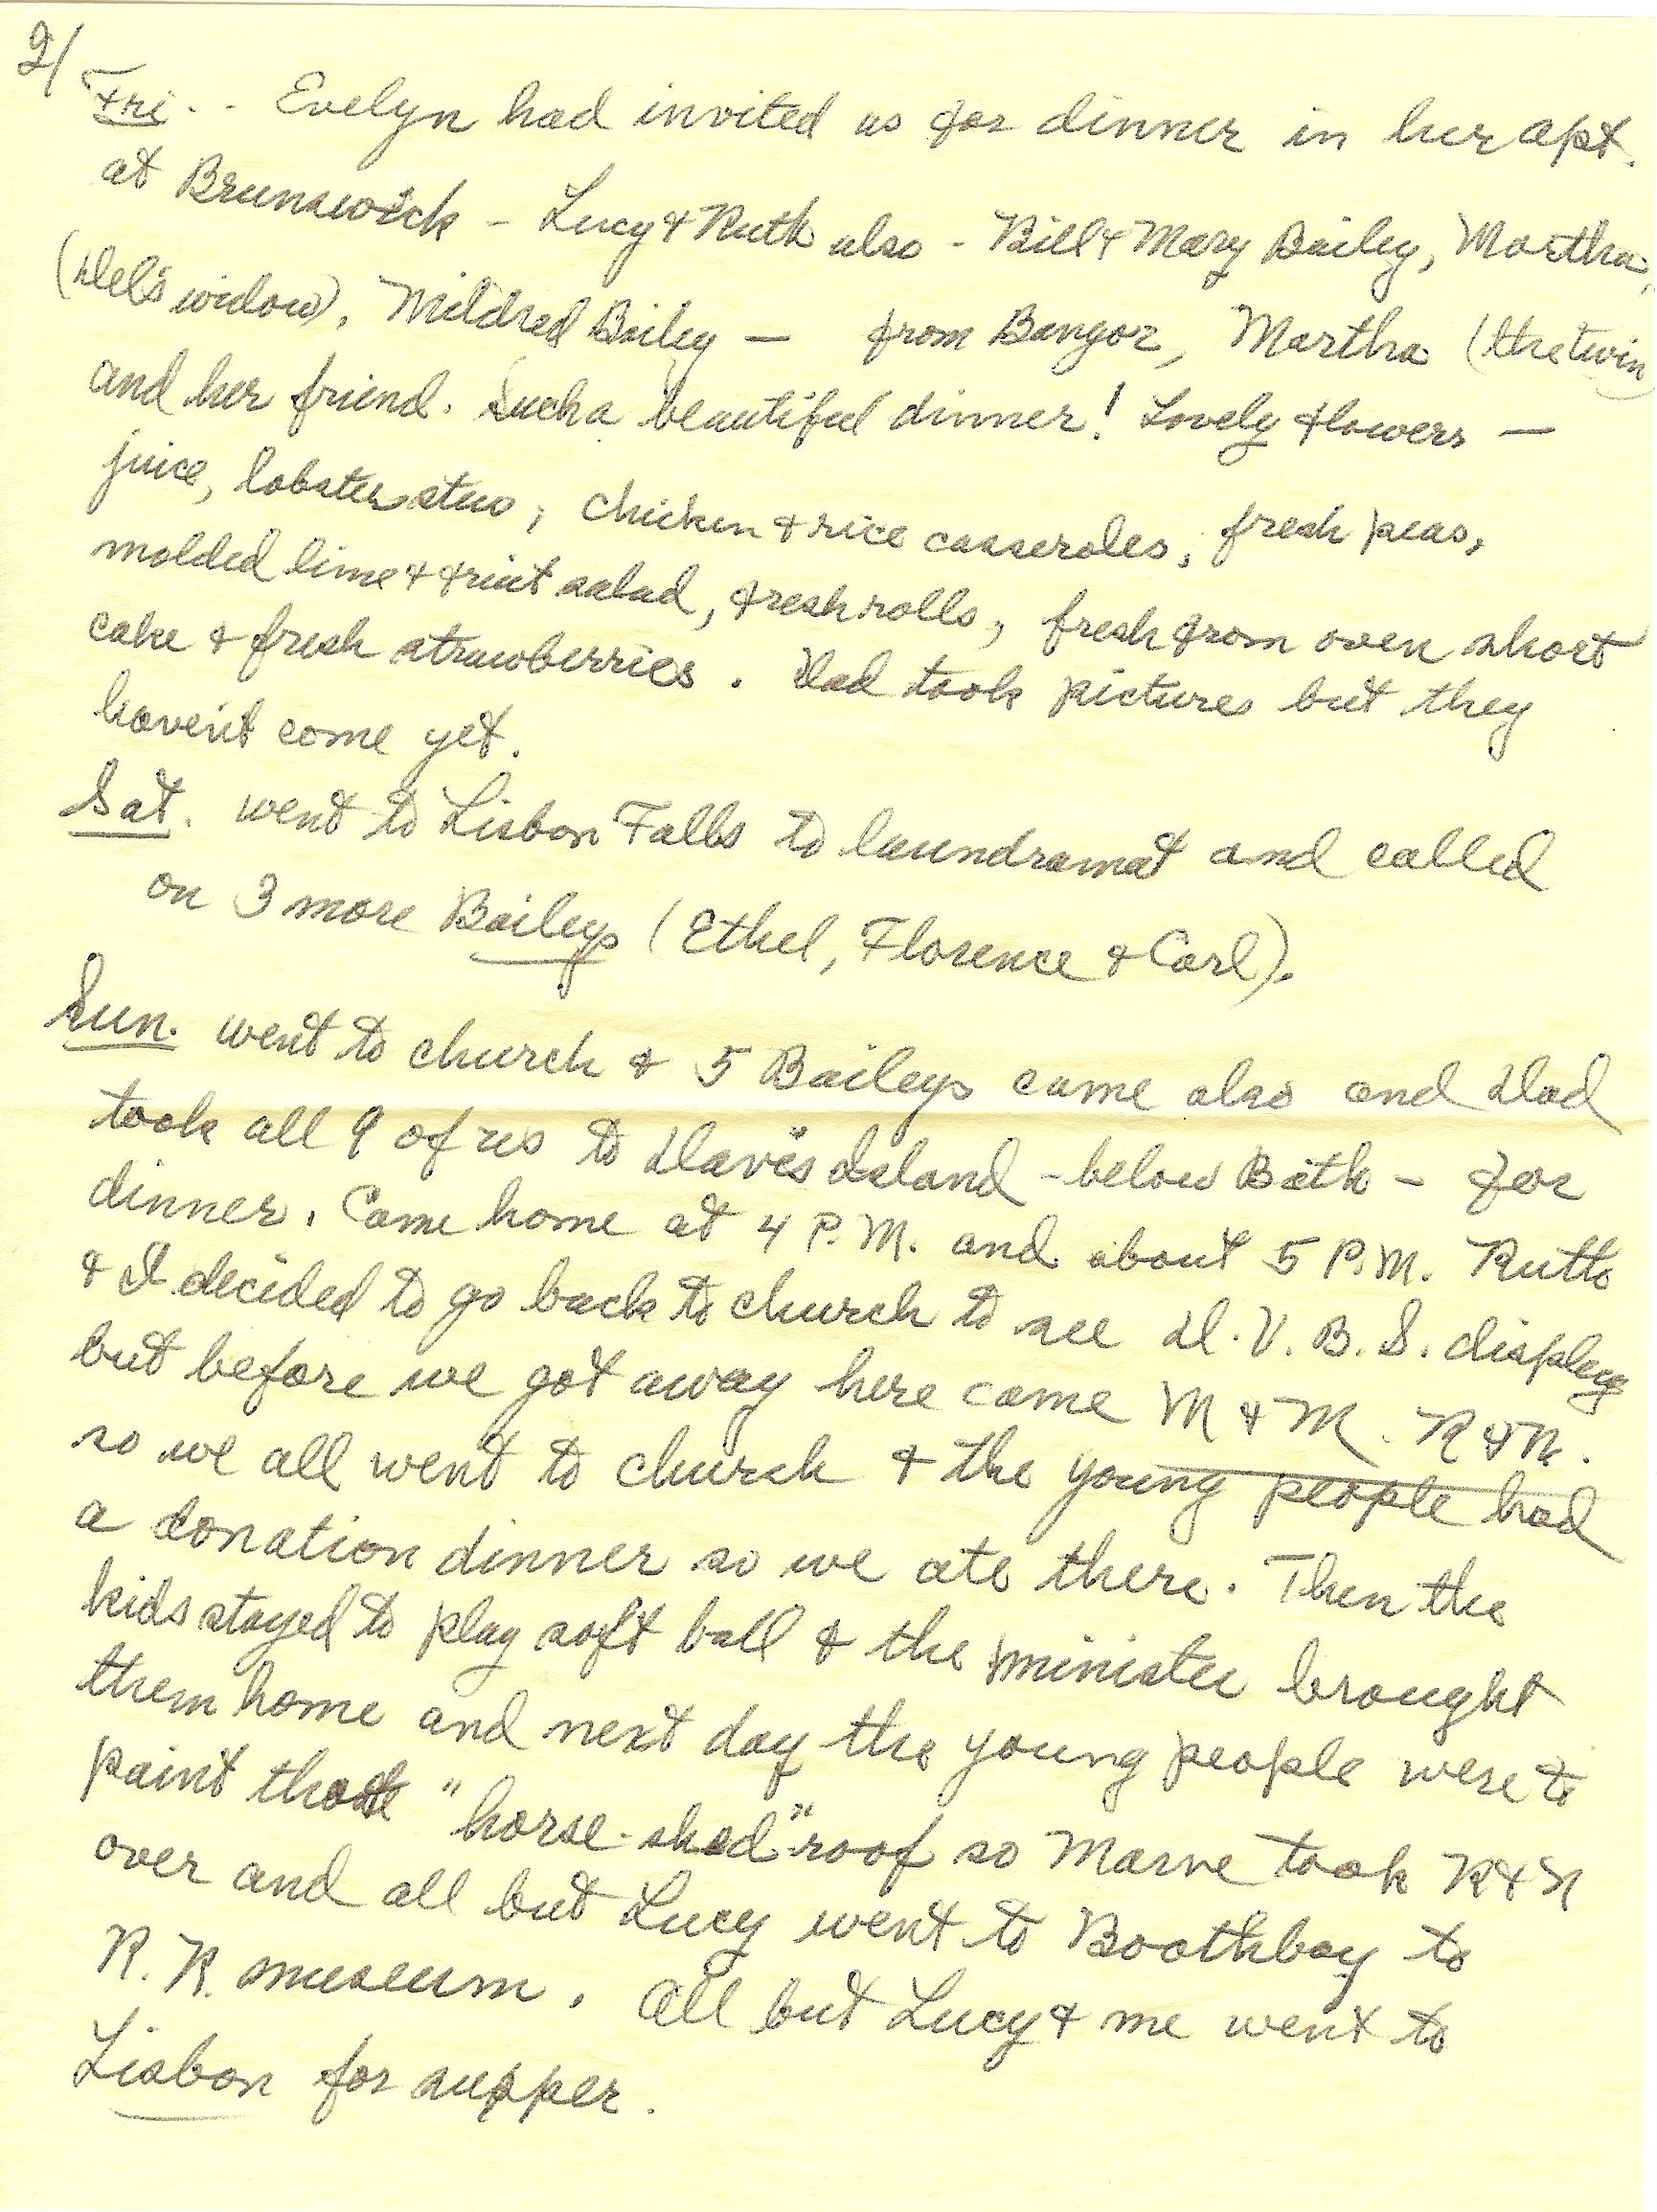 2/
Fri. - Evelyn had invited us for dinner in her apt.
at Brunswick - Lucy & Ruth also - Bill & Mary Bailey, Martha,
(Del's widow), Mildred Bailey — from Bangor, Martha (the twin)
and her friend. Such a beautiful dinner! Lovely flowers —
juice, lobster stew, chicken & rice casseroles, fresh peas,
molded lime & fruit salad, fresh rolls, fresh from oven short
cake & fresh strawberries. Dad took pictures but they
haven't come yet.
Sat. went to Lisbon Falls to laundramat and called
on 3 more Baileys (Ethel, Florence & Carl).
Sun. went to church & 5 Baileys came also and Dad
took all 9 of us to Davis Island - below Bath - for
dinner. Came home at 4 P.M. and about 5 P.M. Ruth
& I decided to go back to church to see D.V.B.S. display
but before we got away here came M & M. R & N.
so we all went to church & the young people had
a donation dinner so we ate there. Then the
kids stayed to play soft ball & the minister brought
them home and next day the young people were to
paint the "horse-shed" roof so Marve took R & N
over and all but Lucy went to Boothbay to
R.R. museum. All but Lucy & me went to
Lisbon for supper.